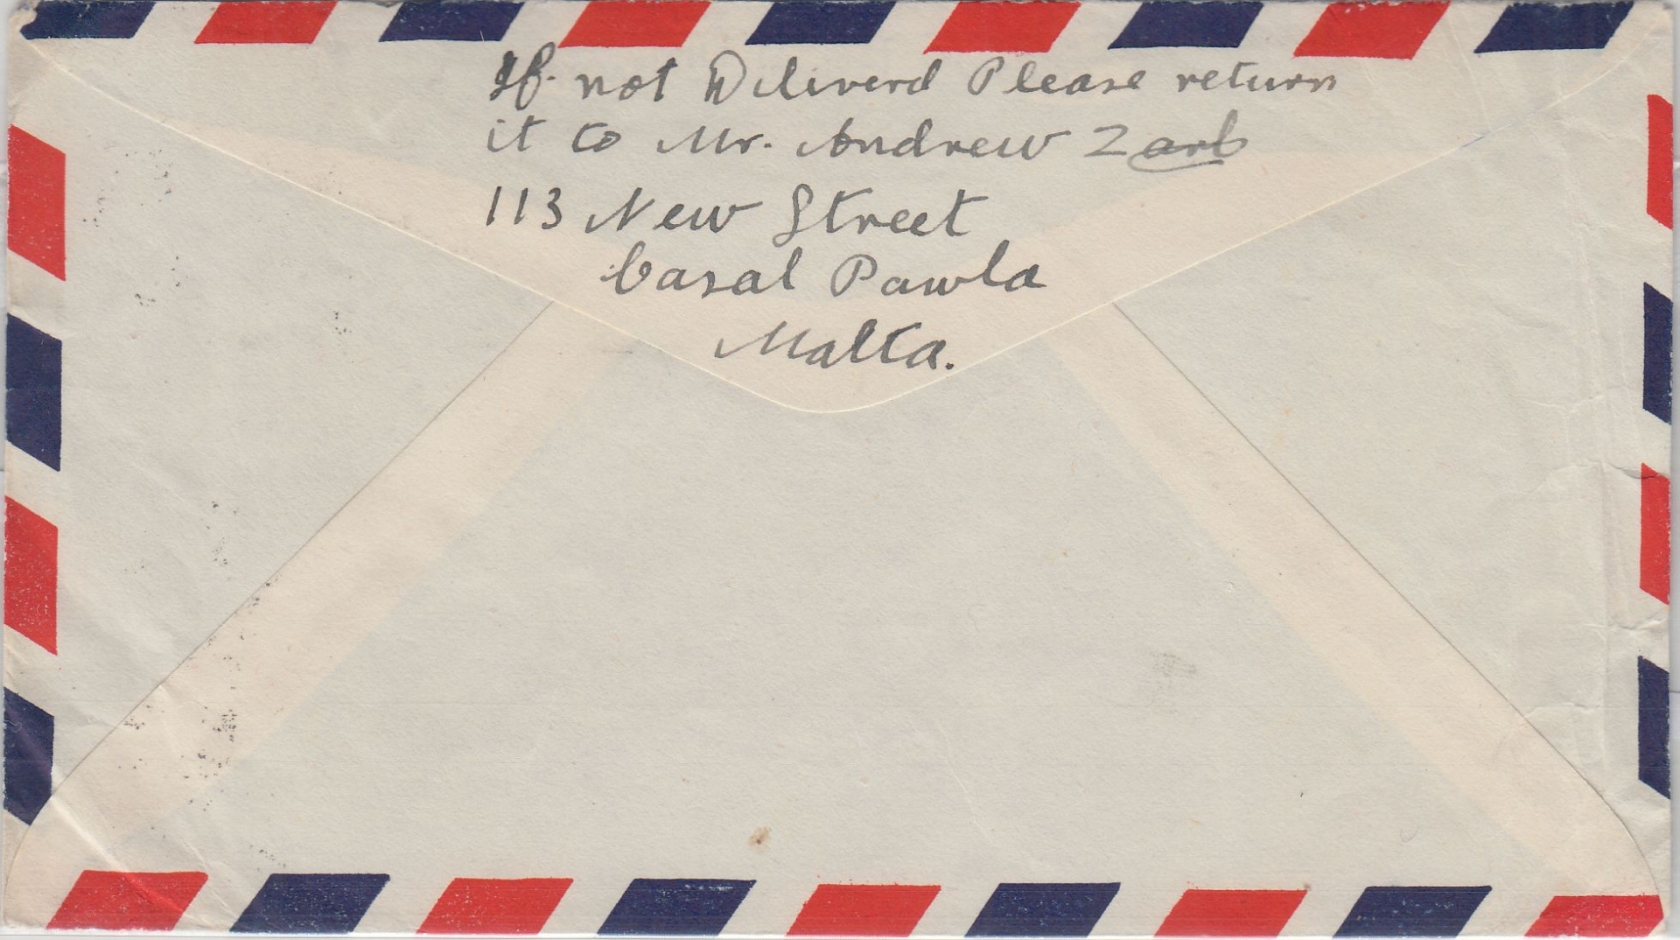 If not Diliverd Please return
it to Mr. Andrew Zarb
113 New Street
Casal Pawla
Malta.